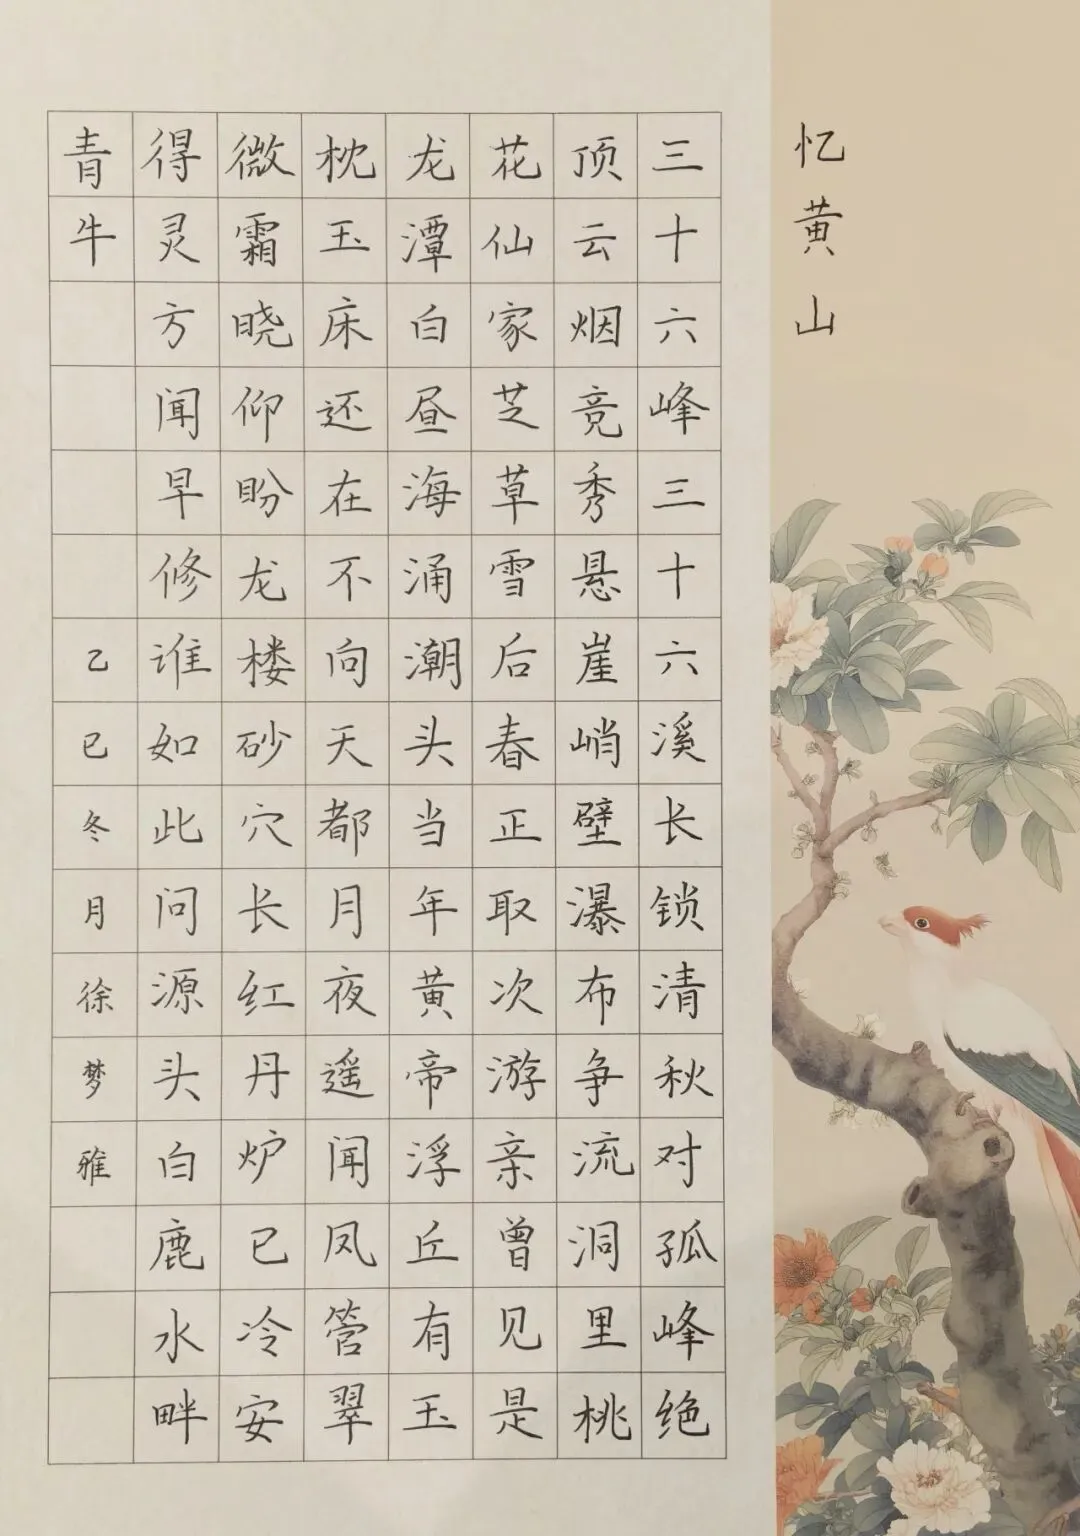 忆黄山
三十六峰三十六溪长锁清秋对孤峰绝
顶云烟竞秀悬崖峭壁瀑布争流洞里桃
花仙家芝草雪后春正取次游亲曾见是
龙潭白昼海涌潮头当年黄帝浮丘有玉
枕玉床还在不向天都月夜遥闻凤管翠
微霜晓仰盼龙楼砂穴长红丹炉已冷安
得灵方闻早修谁如此问源头白鹿水畔
青牛
乙巳冬月徐梦雅